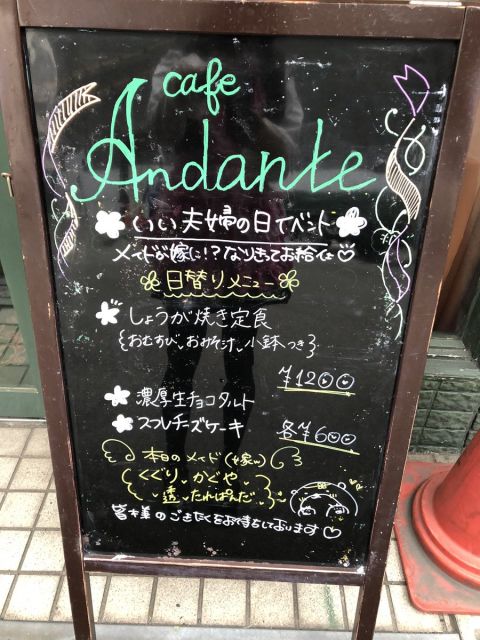 cafe
Andante
いい夫婦の日イベント
メイドが嫁に!?なりきってお給仕♡
日替りメニュー
しょうが焼き定食
{おむすび、おみそ汁、小鉢つき}
¥1200
濃厚生チョコタルト
スフレチーズケーキ
各¥600
本日のメイド(嫁)
くぐり かぐや
透 たれぱんだ
皆様のごきたくをお待ちしております♡